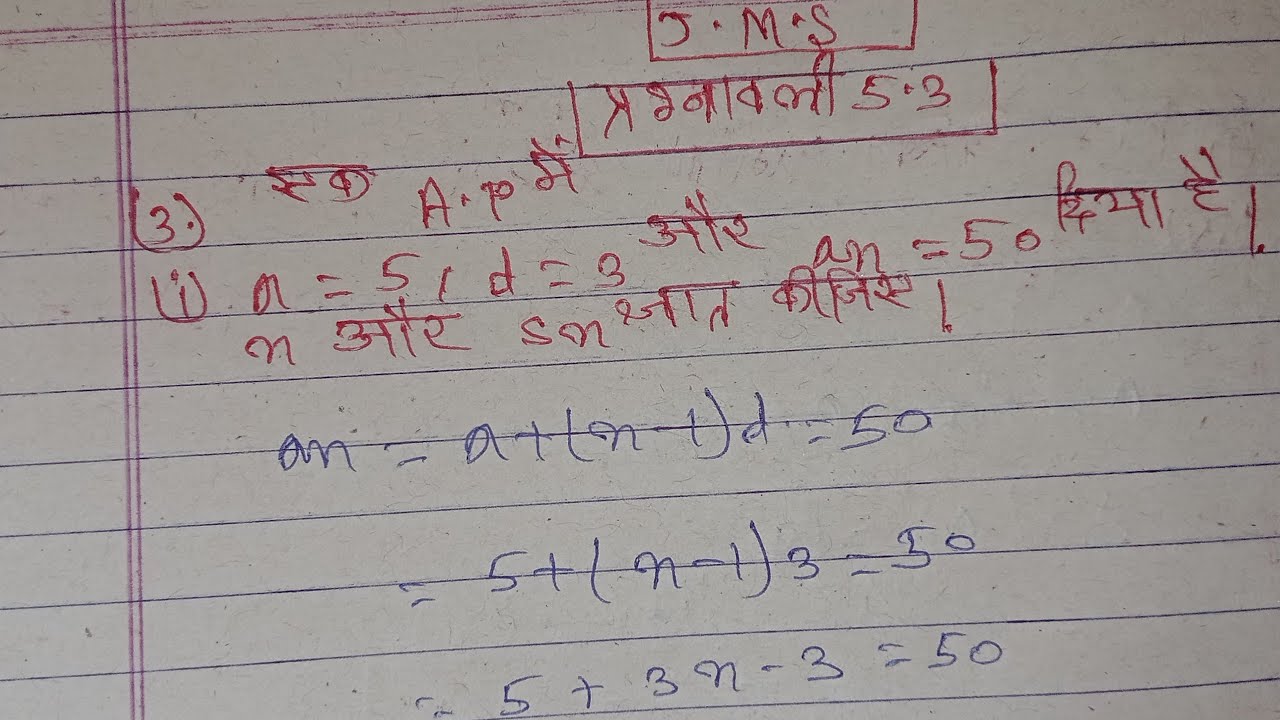 J.M.S
प्रश्नावली 5.3
(3.) एक A.P में
(i) a = 5, d = 3 और an = 50 दिया है।
n और sn ज्ञात कीजिए।
an = a + (n - 1)d = 50
= 5 + (n - 1) 3 = 50
= 5 + 3n - 3 = 50